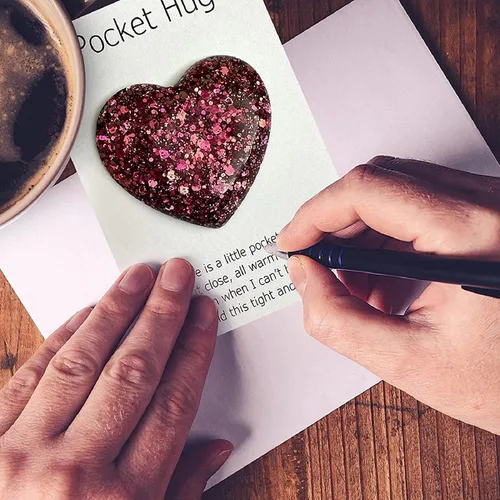 Pocket Hug
e is a little pocket
t close, all warm
n when I can't b
ld this tight and